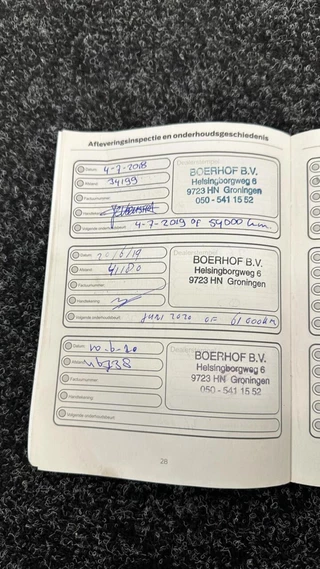 Afleveringsinspectie en onderhoudsgeschiedenis
Datum: 4-7-2018
Afstand: 34199
Factuurnummer:
Handtekening:
Volgende onderhoudsbeurt: 4-7-2019 of 54000 km.
Dealerstempel
BOERHOF B.V.
Helsingborgweg 6
9723 HN Groningen
050 - 541 15 52
Datum: 20/6/19
Afstand: 41180
Factuurnummer:
Handtekening:
Volgende onderhoudsbeurt: juni 2020 of 61000km
BOERHOF B.V.
Helsingborgweg 6
9723 HN Groningen
Datum: 10-6-20
Afstand: 46738
Factuurnummer:
Handtekening:
Volgende onderhoudsbeurt:
BOERHOF B.V.
Helsingborgweg 6
9723 HN Groningen
050 - 541 15 52